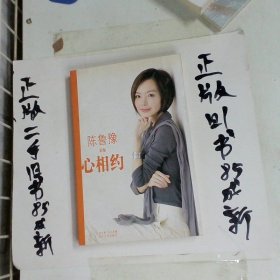 正版二手旧书85成新
陈鲁豫
心相约
正版旧书85成新